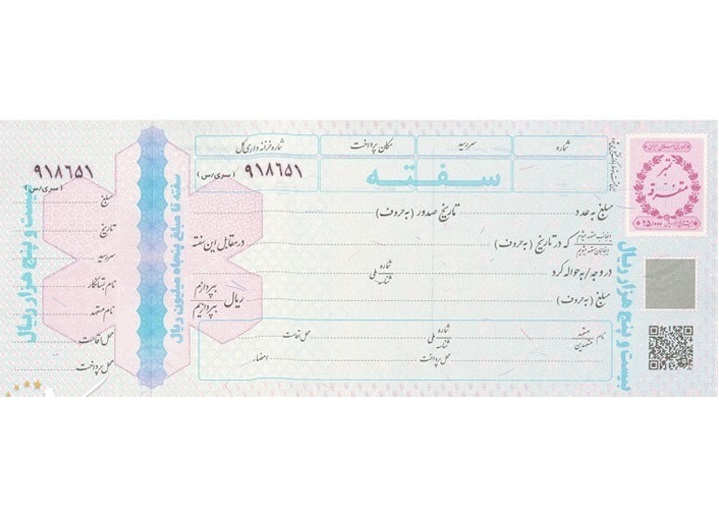 شماره
سررسید
مکان پرداخت
شماره خزانه داری کل
سفته
۹۱۸۶۵۱ (سری/س)
مبلغ به عدد
تاریخ صدور (به حروف)
اینجانب متعهد میشوم
اینجانبان متعهد میشویم
که در تاریخ (به حروف)
در مقابل این سفته
در وجه/به حواله کرد
شماره
شناسه
ملی
بپردازم
بپردازیم
مبلغ (به حروف)
ریال
نام
متعهد
متعهدین
شماره
شناسه
ملی
محل اقامت
محل پرداخت
امضاء
تمبر
متفرقه
۲۵/۰۰۰
بیست و پنج هزار ریال
سفته تا مبلغ پنجاه میلیون ریال
۹۱۸۶۵۱
(سری/س)
مبلغ
تاریخ
سررسید
نام بستانکار
نام متعهد
محل اقامت
محل پرداخت
بیست و پنج هزار ریال